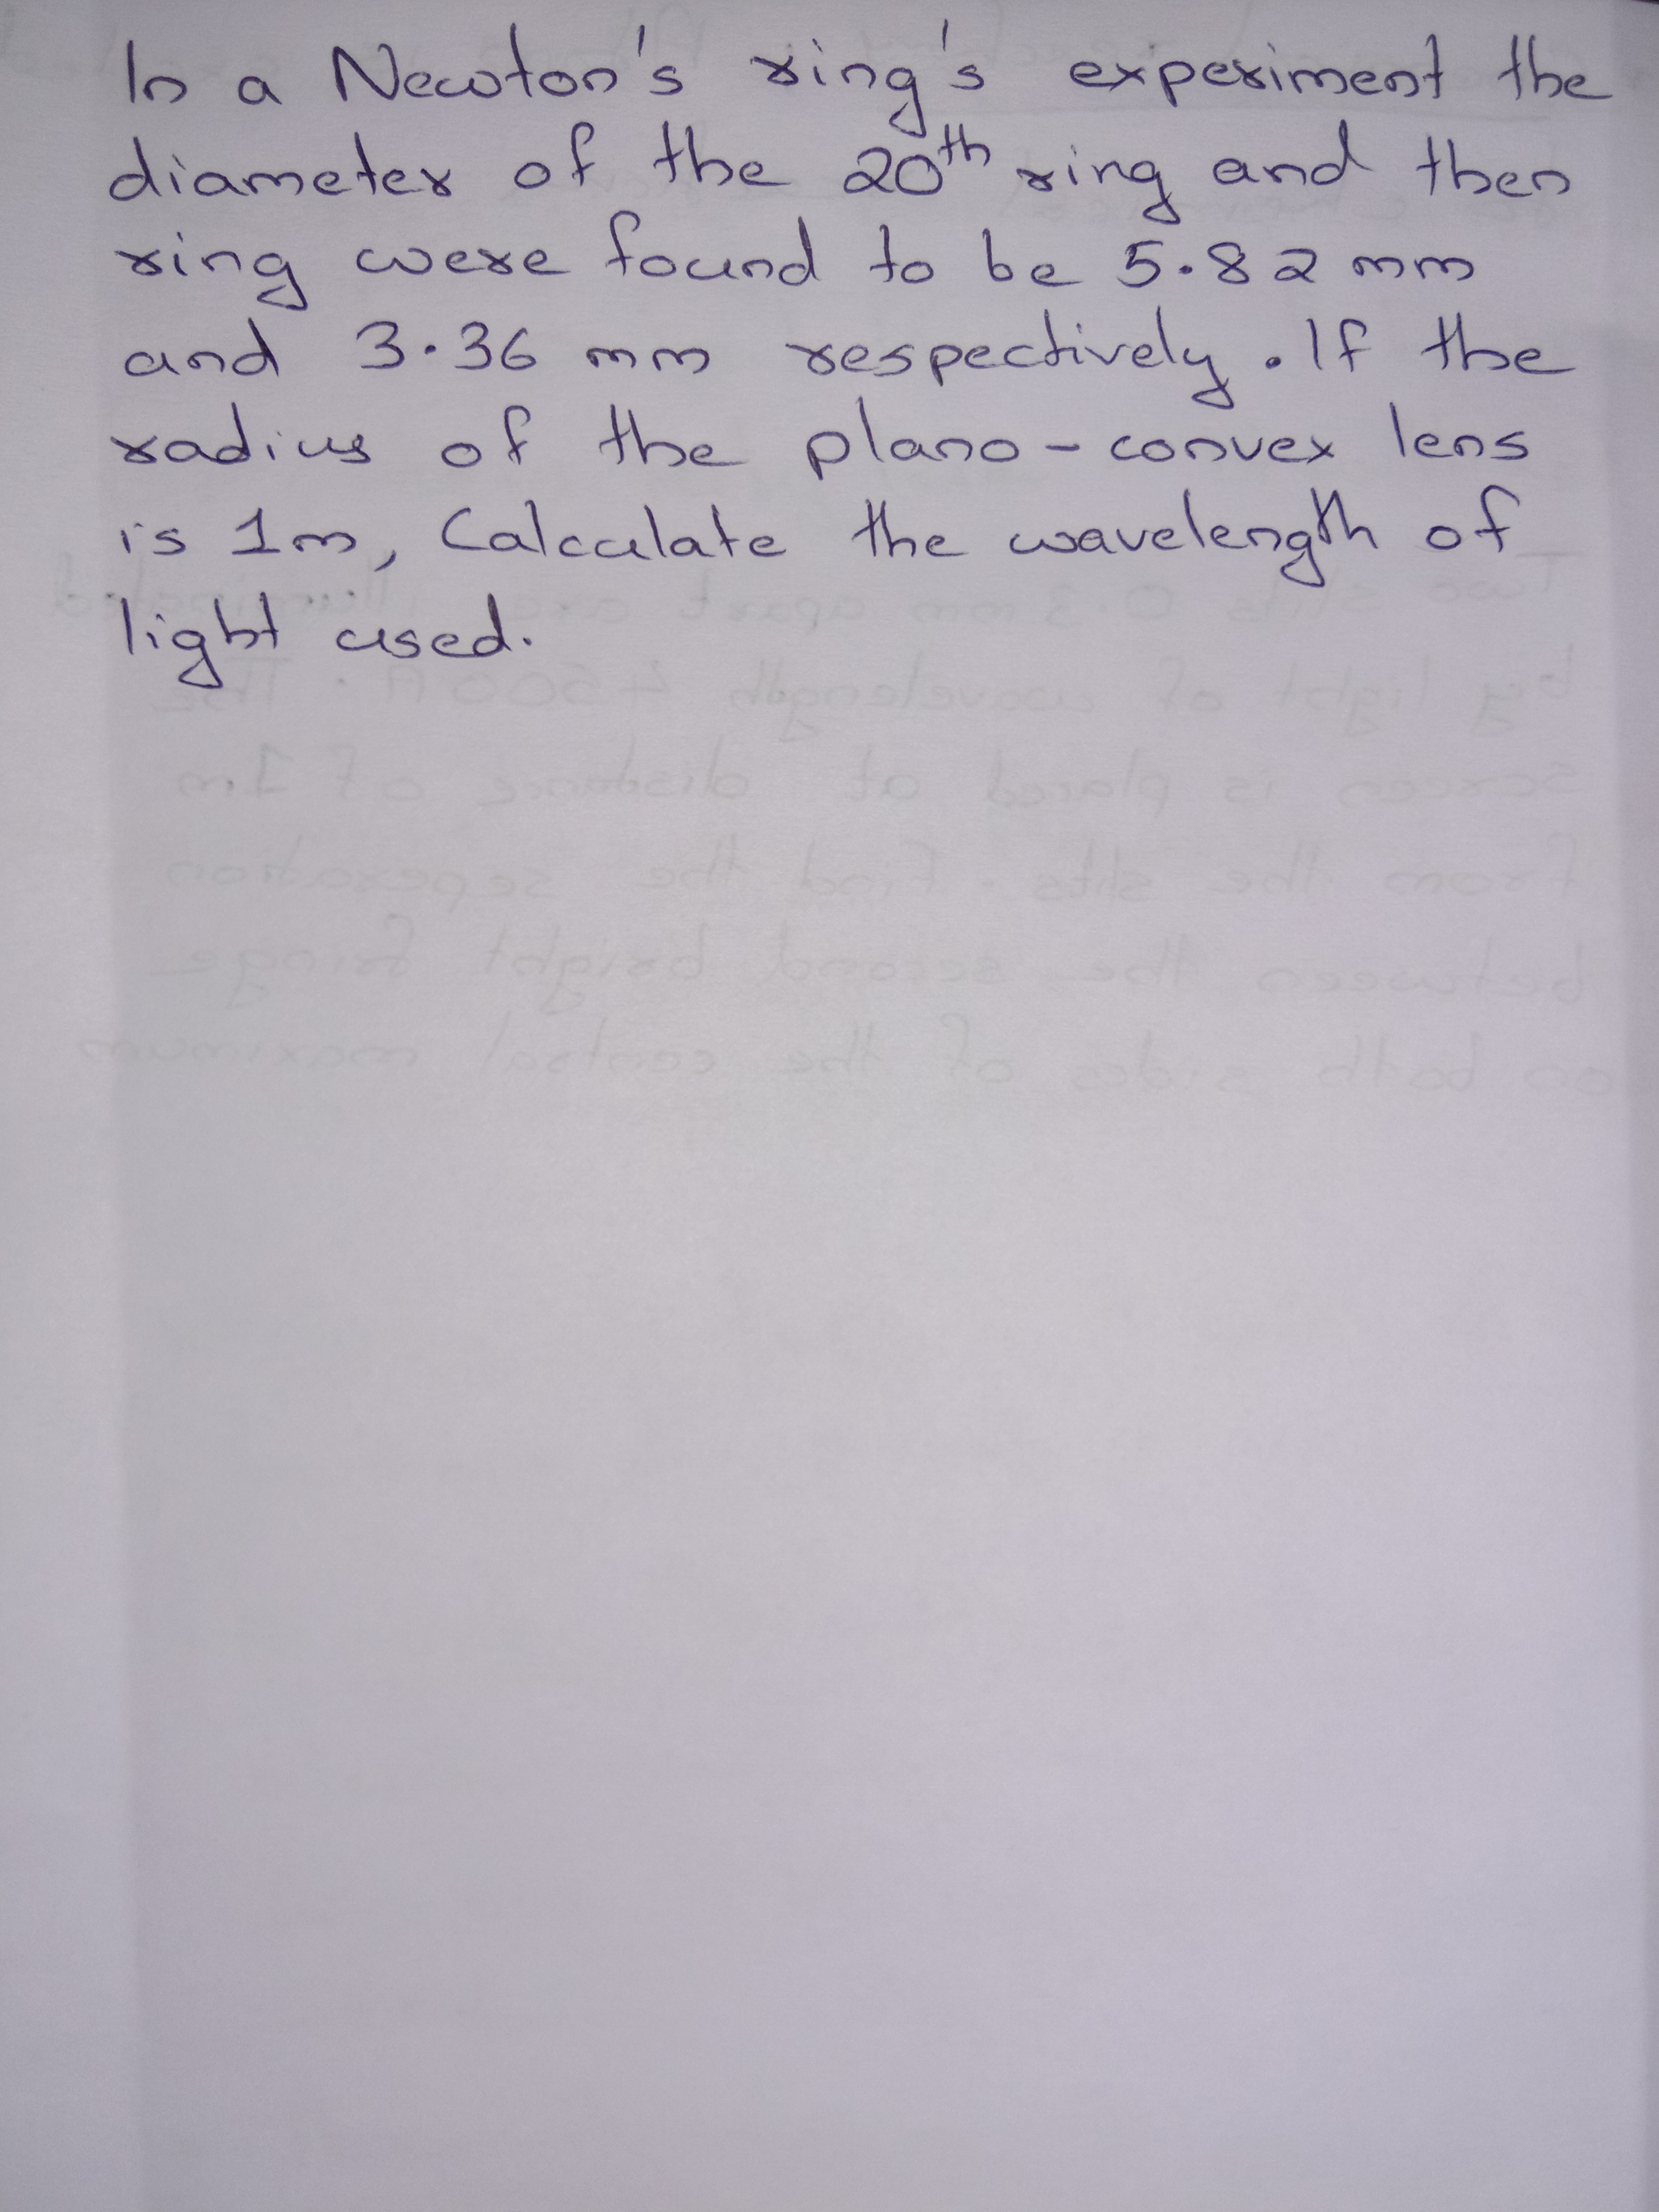 In a Newton's ring's experiment the
diameter of the 20th ring and then
ring were found to be 5.82 mm
and 3.36 mm respectively. If the
radius of the plano-convex lens
is 1m, Calculate the wavelength of
light used.